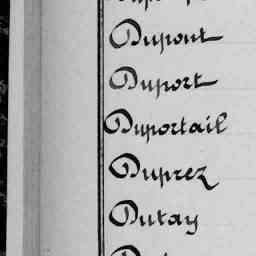 Dupont
Duport
Duportail
Duprez
Dutay